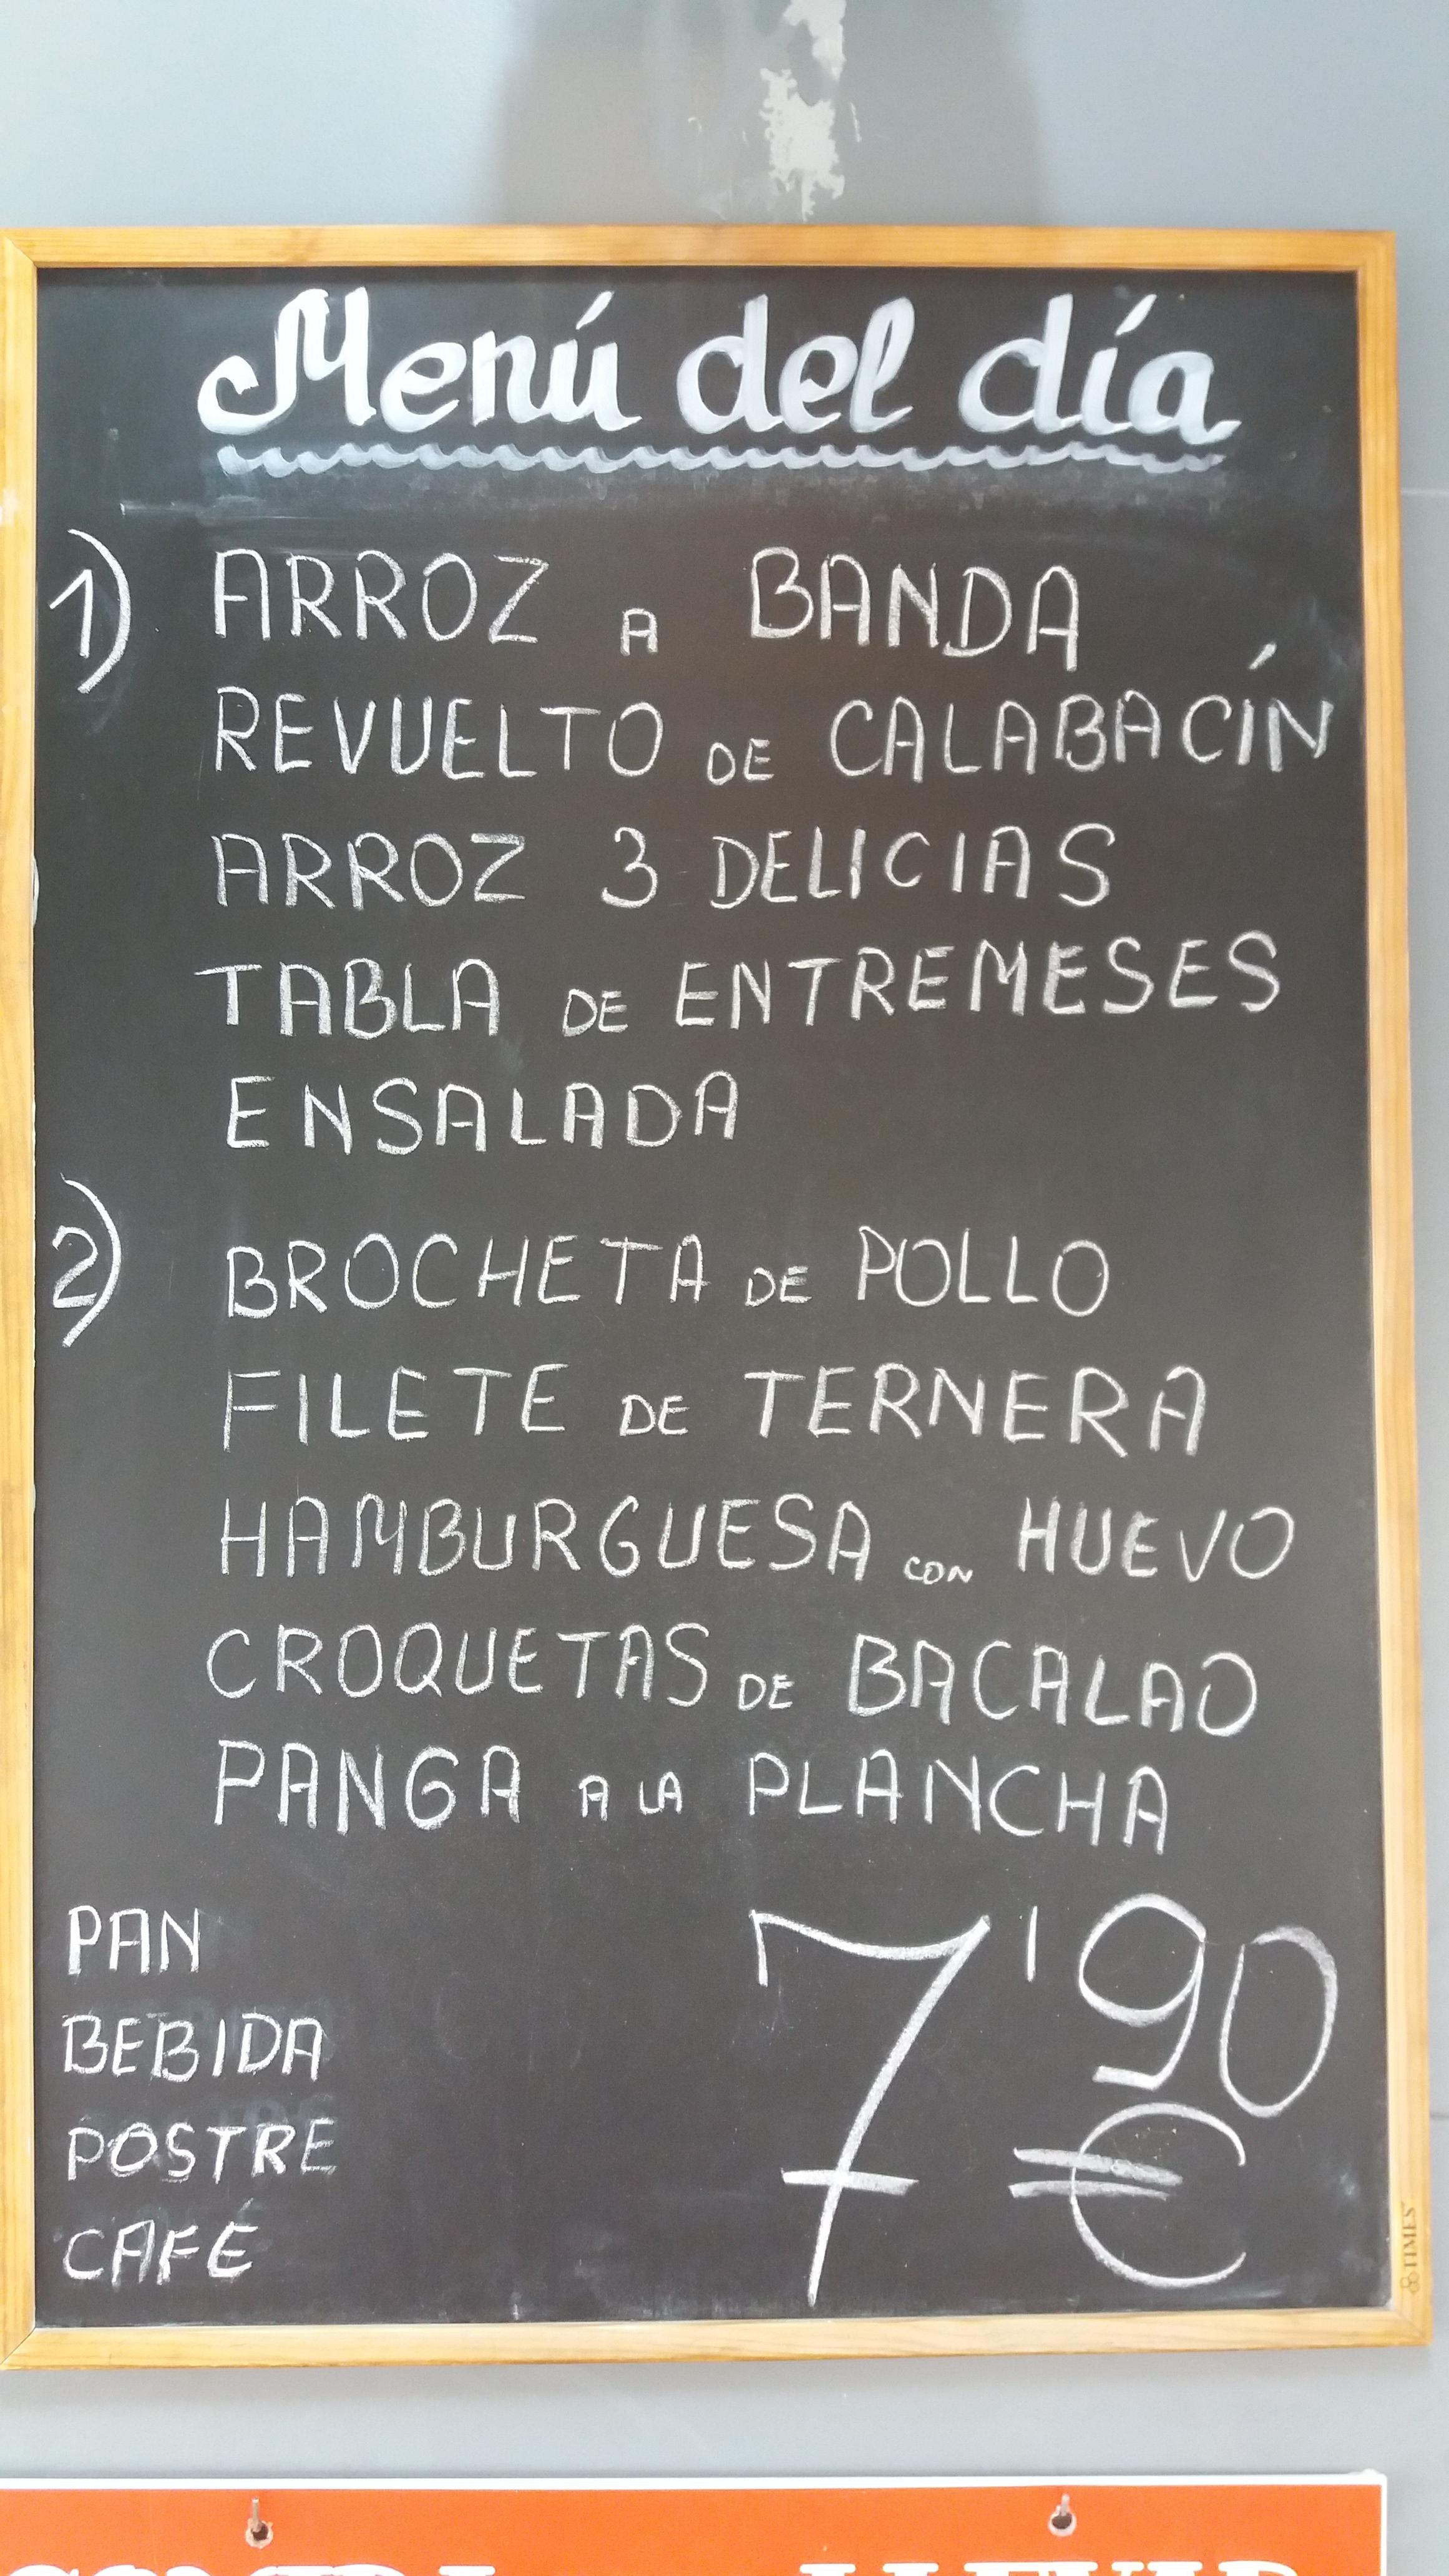 Menú del día
1) ARROZ A BANDA
REVUELTO DE CALABACÍN
ARROZ 3 DELICIAS
TABLA DE ENTREMESES
ENSALADA
2) BROCHETA DE POLLO
FILETE DE TERNERA
HAMBURGUESA CON HUEVO
CROQUETAS DE BACALAO
PANGA A LA PLANCHA
PAN
BEBIDA
POSTRE
CAFÉ
7'90
€
TIMES